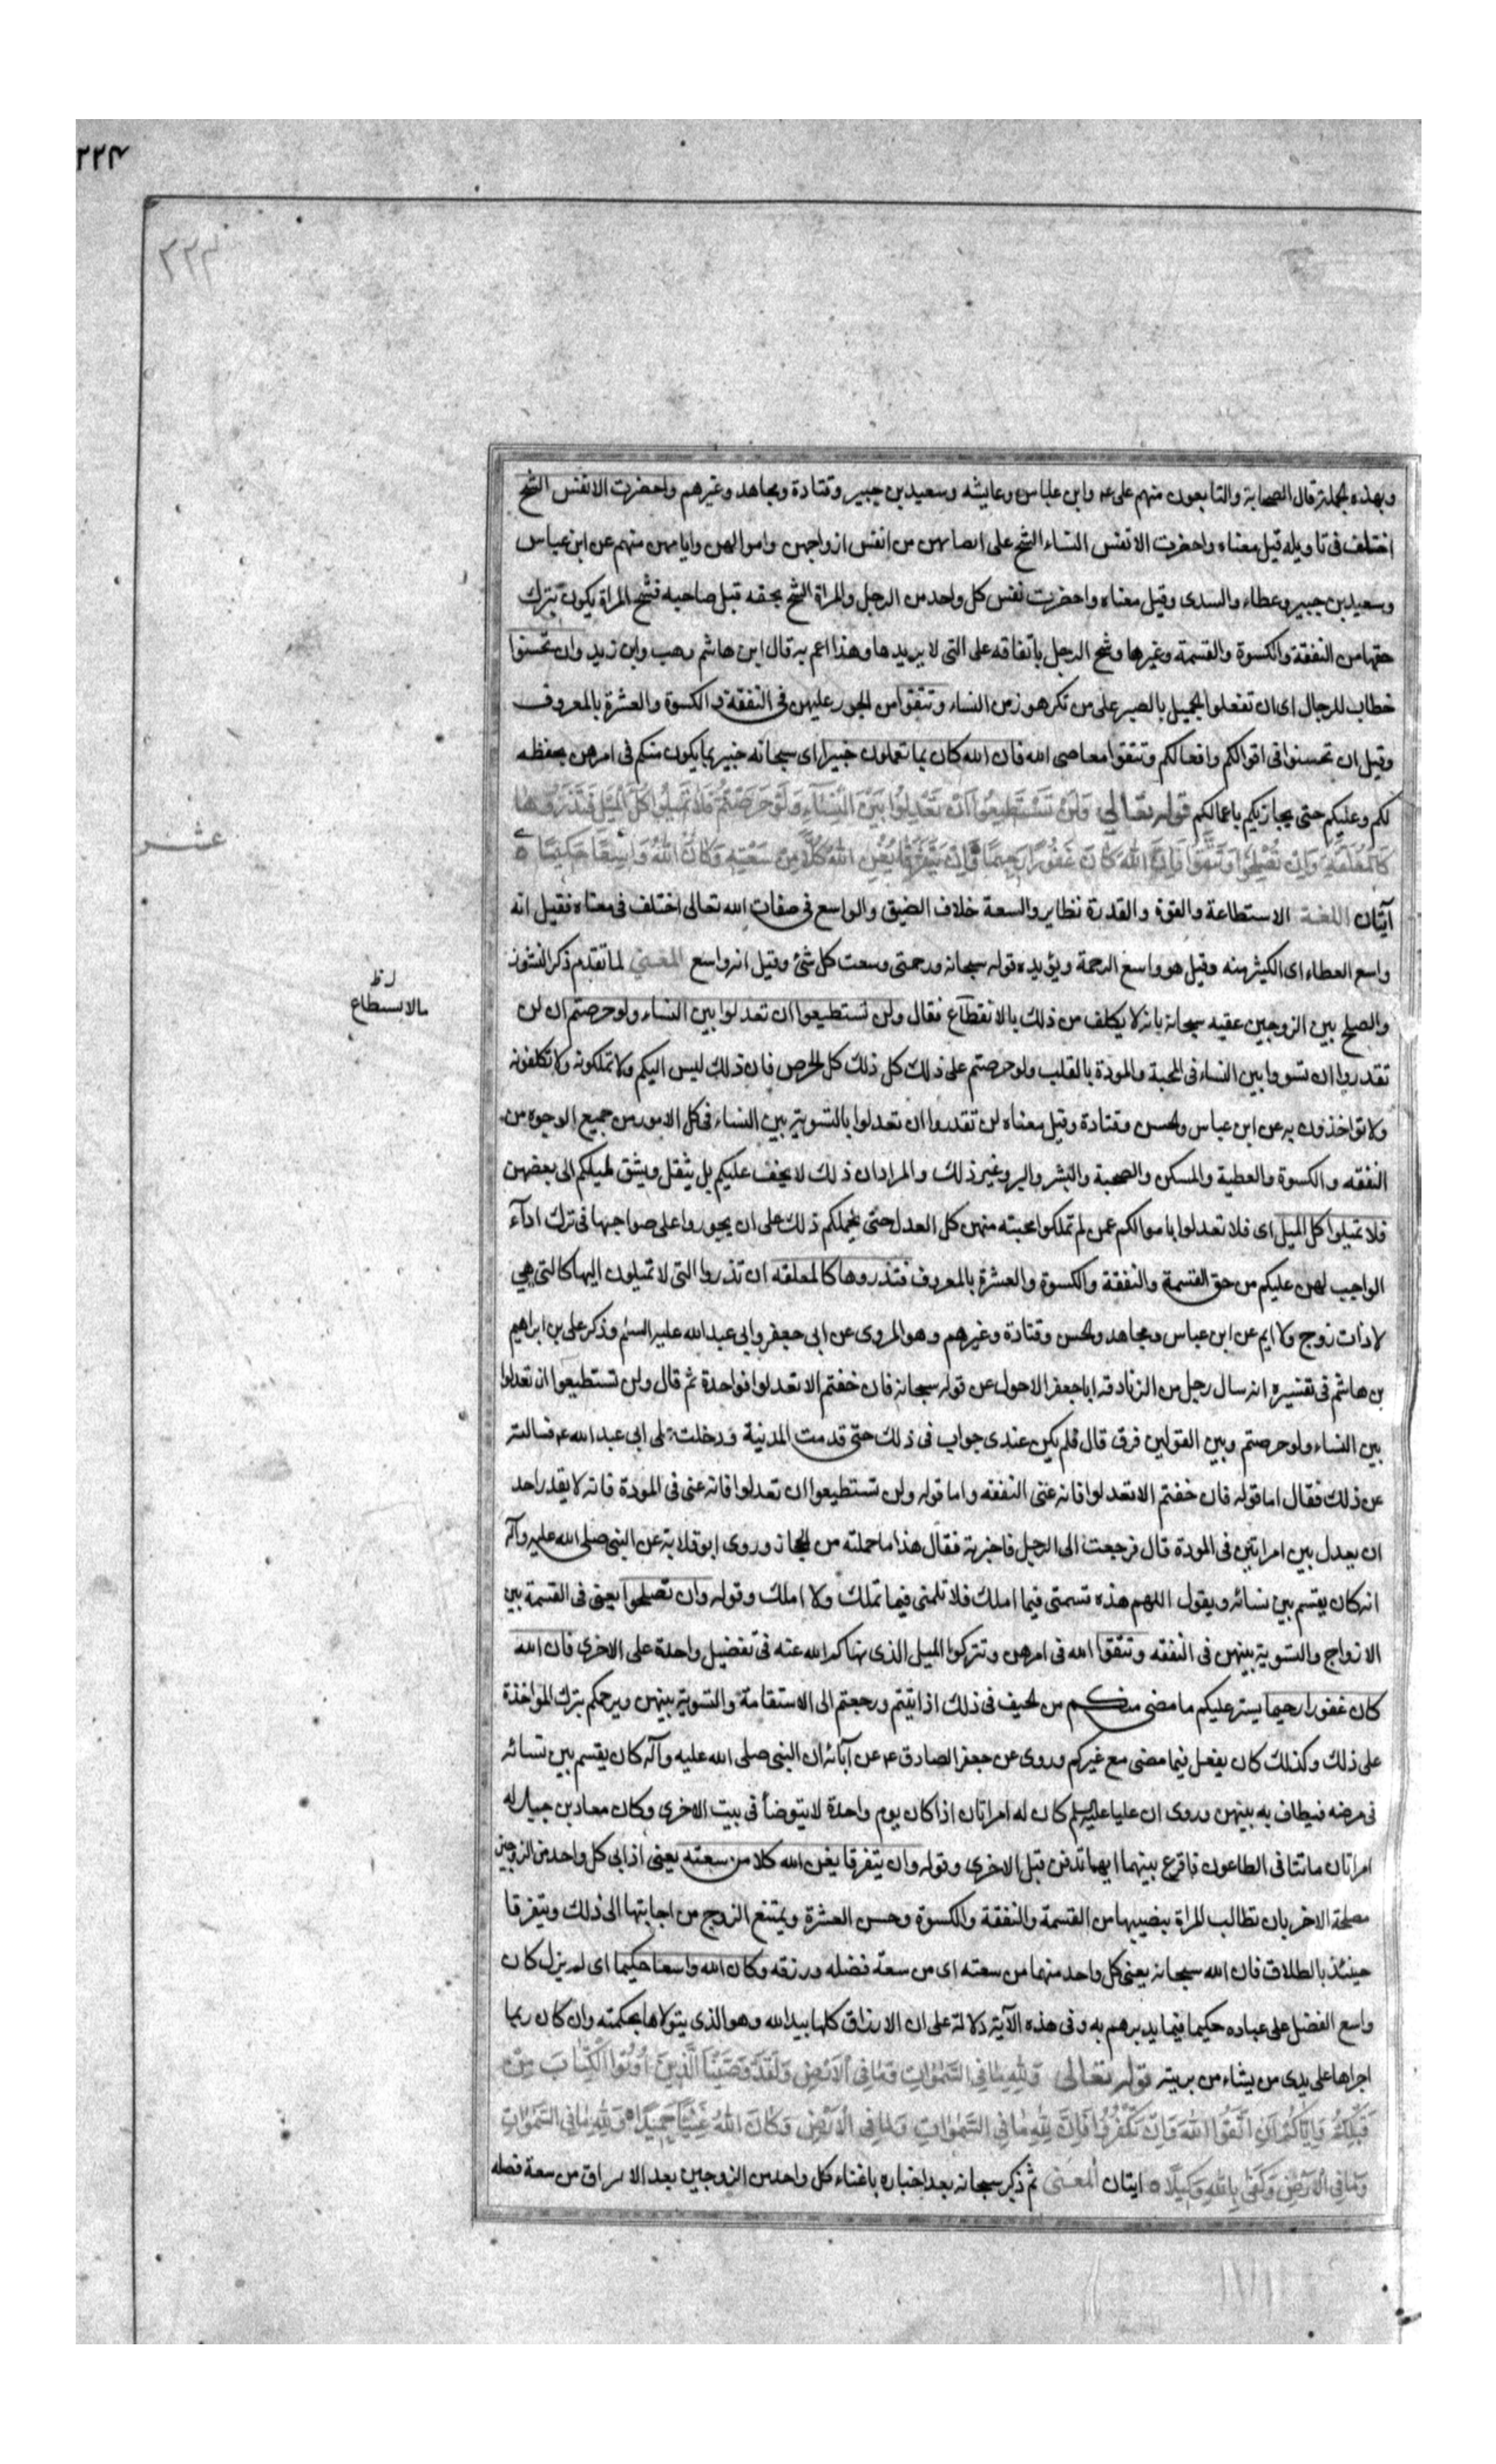 ٢٢٤
٢٢٣
وبهذه الجملة قال الصحابة والتابعون منهم على ع وابن عباس وعايشه وسعيد بن جبير وقتادة ومجاهد وغيرهم واحضرت الانفس الشح
اختلف فى تاويله قيل معناه واحضرت الانفس النساء الشح على انصبائهن من انفس ازواجهن واموالهن وايامهن منهم عن ابن عباس
وسعيد بن جبير وعطاء والسدى وقيل معناه واحضرت نفس كل واحد من الرجل والمراة الشح بحقه قبل صاحبه فشح المراة يكون بترك
حقها من النفقة والكسوة والقسمة وغيرها وشح الرجل بانفاقه على التى لا يريدها وهذا اعم به قال ابن هاشم وهب وابن زيد وان تحسنوا
خطاب للرجال اى ان تفعلوا الجميل بالصبر على من تكرهون من النساء وتتقوا من الجور عليهن فى النفقة والكسوة والعشرة بالمعروف
وقيل ان تحسنوا فى اقوالكم وافعالكم وتتقوا معاصى الله فان الله كان بما تعملون خبيرا اى سبحانه خبير بما يكون منكم فى امرهن بحفظه
لكم وعليكم حتى يجازيكم باعمالكم قوله تعالى وَلَنْ تَسْتَطِيعُوا اَنْ تَعْدِلُوا بَيْنَ النِّسَآءِ وَلَوْ حَرَصْتُمْ فَلَا تَمِيلُوا كُلَّ الْمَيْلِ فَتَذَرُوهَا
كَالْمُعَلَّقَةِ وَاِنْ تُصْلِحُوا وَتَتَّقُوا فَاِنَّ اللهَ كَانَ غَفُورًا رَحِيمًا وَاِنْ يَتَفَرَّقَا يُغْنِ اللهُ كُلًّا مِنْ سَعَتِهِ وَكَانَ اللهُ وَاسِعًا حَكِيمًا
عشر
آيتان اللغة الاستطاعة والقوة والقدرة نظاير والسعة خلاف الضيق والواسع فى صفات الله تعالى اختلف فى معناه فقيل انه
واسع العطاء اى الكثير منه وقيل هو واسع الرحمة ويؤيده قوله سبحانه ورحمتى وسعت كل شئ وقيل انه واسع المعنى لما تقدم ذكر النشوز
والصلح بين الزوجين عقبه سبحانه بانه لا يكلف من ذلك بالانقطاع فقال ولن تستطيعوا ان تعدلوا بين النساء ولو حرصتم ان لن
مالا يسطاع
تقدروا ان تسووا بين النساء فى المحبة والمودة بالقلب ولو حرصتم على ذلك كل ذلك كل الحرص فان ذلك ليس اليكم ولا تملكونه ولا تكلفونه
ولا تواخذون به عن ابن عباس والحسن وقتادة وقيل معناه لن تقدروا ان تعدلوا بالتسوية بين النساء فى كل الامور من جميع الوجوه من
النفقه والكسوة والعطية والمسكن والصحبة والبشر والبر وغير ذلك والمراد ان ذلك لا يخف عليكم بل يثقل ويشق لميلكم الى بعضهن
فلا تميلوا كل الميل اى فلا تعدلوا باموالكم عمن لم تملكوا محبته منهن كل العدل حتى يحملكم ذلك على ان يجوروا على صواحبها فى ترك اداء
الواجب لهن عليكم من حق القسمة والنفقة والكسوة والعشرة بالمعروف فتذروها كالمعلقه ان تذروا التى لا تميلون اليها كالتى هى
لا ذات زوج ولا ايم عن ابن عباس ومجاهد والحسن وقتادة وغيرهم وهو المروى عن ابى جعفر وابى عبد الله عليه السلم وذكر على بن ابراهيم
بن هاشم فى تفسيره انه سال رجل من الزنادقه ابا جعفر الاحول عن قوله سبحانه فان خفتم الا تعدلوا فواحدة ثم قال ولن تستطيعوا ان تعدلوا
بين النساء ولو حرصتم وبين القولين فرق قال فلم يكن عندى جواب فى ذلك حتى قدمت المدينة فدخلت على ابى عبد الله ع فسالته
عن ذلك فقال اما قوله فان خفتم الا تعدلوا فانه عنى النفقه واما قوله ولن تستطيعوا ان تعدلوا فانه عنى فى المودة فانه لا يقدر احد
ان يعدل بين امراتين فى المودة قال فرجعت الى الرجل فاخبرته فقال هذا ما حملته من الحجاز وروى ابو قلابة عن النبى صلى الله عليه وآله
انه كان يقسم بين نسائه ويقول اللهم هذه قسمتى فيما املك فلا تلمنى فيما تملك ولا املك وقوله وان تصلحوا يعنى فى القسمة بين
الازواج والتسوية بينهن فى النفقه وتتقوا الله فى امرهن وتتركوا الميل الذى نهاكم الله عنه فى تفضيل واحدة على الاخرى فان الله
كان غفورا رحيما يستر عليكم ما مضى منكم من الحيف فى ذلك اذا تبتم ورجعتم الى الاستقامة والتسوية بينهن ويرحمكم بترك المواخذة
على ذلك وكذلك كان يفعل فيما مضى مع غيركم وروى عن جعفر الصادق ع عن آبائه ان النبى صلى الله عليه وآله كان يقسم بين نسائه
فى مرضه فيطاف به بينهن وروى ان عليا عليه السلم كان له امراتان اذا كان يوم واحدة لا يتوضأ فى بيت الاخرى وكان معاد بن جبل له
امراتان ماتتا فى الطاعون فاقرع بينهما ايهما تدفن قبل الاخرى وقوله وان يتفرقا يغن الله كلا من سعته يعنى اذا ابى كل واحد من الزوجين
مصلحة الاخر بان تطالب المراة بنصيبها من القسمة والنفقة والكسوة وحسن العشرة ويمتنع الزوج من اجابتها الى ذلك ويتفرقا
حينئذ بالطلاق فان الله سبحانه يعنى كل واحد منهما من سعته اى من سعة فضله ورزقه وكان الله واسعا حكيما اى لم يزل كان
واسع الفضل على عباده حكيما فيما يدبرهم به وفى هذه الآية دلالة على ان الارزاق كلها بيد الله وهو الذى يتولاها بحكمته وان كان ربما
اجراها على يدى من يشاء من بريته قوله تعالى وَلِلّهِ مَا فِى السَّمٰوَاتِ وَمَا فِى الْاَرْضِ وَلَقَدْ وَصَّيْنَا الَّذِينَ اُوتُوا الْكِتَابَ مِنْ
قَبْلِكُمْ وَاِيَّاكُمْ اَنِ اتَّقُوا اللهَ وَاِنْ تَكْفُرُوا فَاِنَّ لِلّهِ مَا فِى السَّمٰوَاتِ وَمَا فِى الْاَرْضِ وَكَانَ اللهُ غَنِيًّا حَمِيدًا وَلِلّهِ مَا فِى السَّمٰوَاتِ
وَمَا فِى الْاَرْضِ وَكَفَى بِاللهِ وَكِيلًا ايتان المعنى ثم ذكر سبحانه بعد اخباره باغناء كل واحد من الزوجين بعد الافتراق من سعة فضله